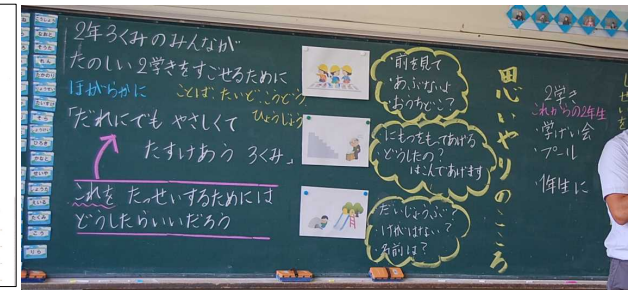 2年3くみのみんなが
たのしい2学きをすごせるために
ほがらかに ことば、たいど、こうどう
ひょうじょう
「だれにでも やさしくて
たすけあう 3くみ」
これを たっせいするためには
どうしたらいいだろう
・前を見て
・あぶないよ
・おうちどこ?
・にもつをもってあげる
・どうしたの?
はこんであげます
・だいじょうぶ?
・けがはない?
・名前は?
思いやりのこころ
2学き
これからの2年生
・学げい会
・プール
・1年生に